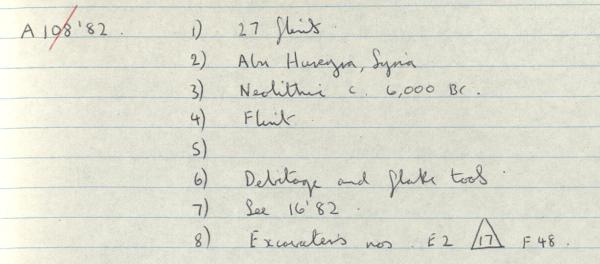 A 108'82. 1) 27 flints.
2) Abu Hureyra, Syria
3) Neolithic c. 6,000 BC.
4) Flint.
5)
6) Debitage and flake tools.
7) See 16'82.
8) Excavater's nos. E2 17 F48.